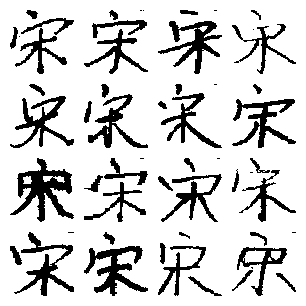 宋宋宋宋
宋宋宋宋
宋宋宋宋
宋宋宋宋